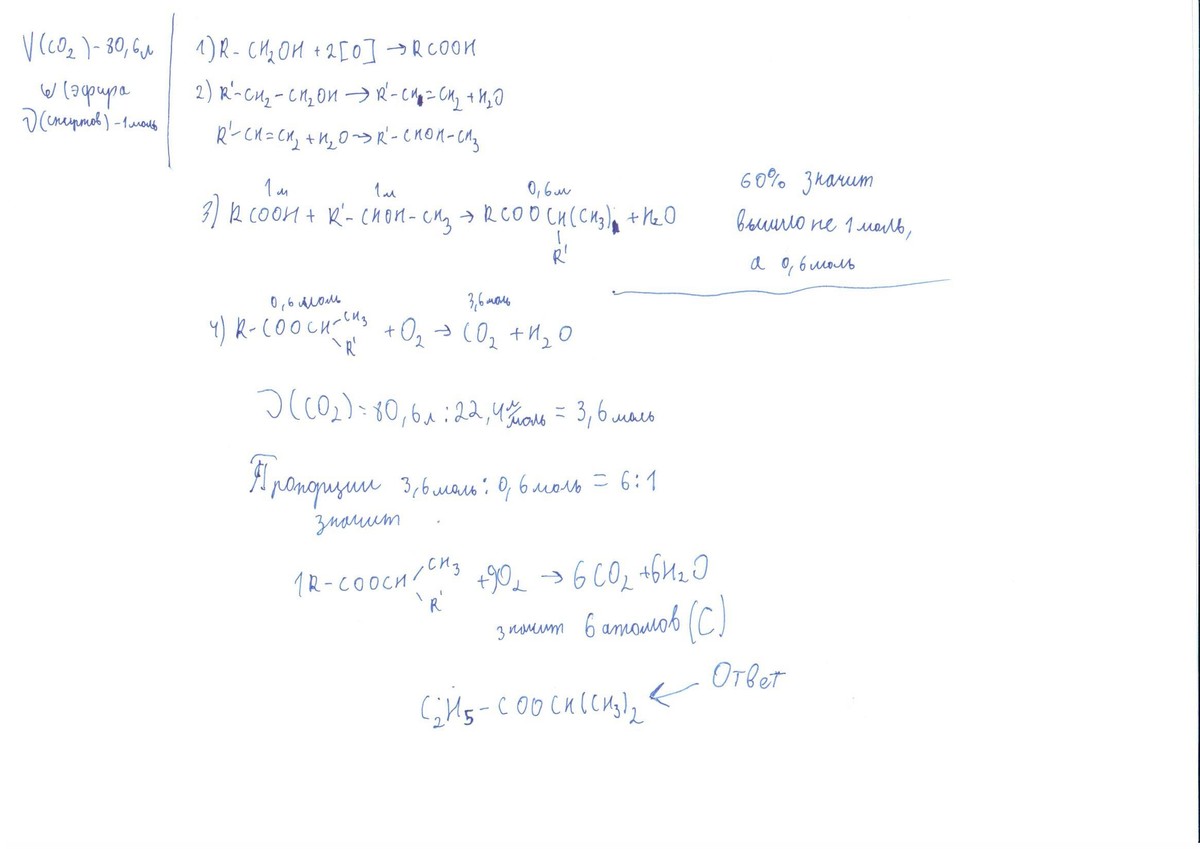 V(CO₂) - 80,6л
ω (эфира
ν(спиртов) - 1 моль
1) R - CH₂OH + 2[O] → RCOOH
2) R'-CH₂-CH₂OH → R'-CH=CH₂ + H₂O
R'-CH=CH₂ + H₂O → R'-CHOH-CH₃
1м 1м 0,6м
3) RCOOH + R'-CHOH-CH₃ → RCOOCH(CH₃) + H₂O
R'
60% значит
вышло не 1 моль,
а 0,6 моль
0,6 моль 3,6 моль
4) R-COOCH-CH₃ + O₂ → CO₂ + H₂O
R'
ν(CO₂) = 80,6л : 22,4 л/моль = 3,6 моль
Пропорции 3,6 моль : 0,6 моль = 6:1
значит
1R-COOCH/CH₃ + 9O₂ → 6CO₂ + 6H₂O
\R'
значит 6 атомов (C)
Ответ
C₂H₅-COOCH(CH₃)₂